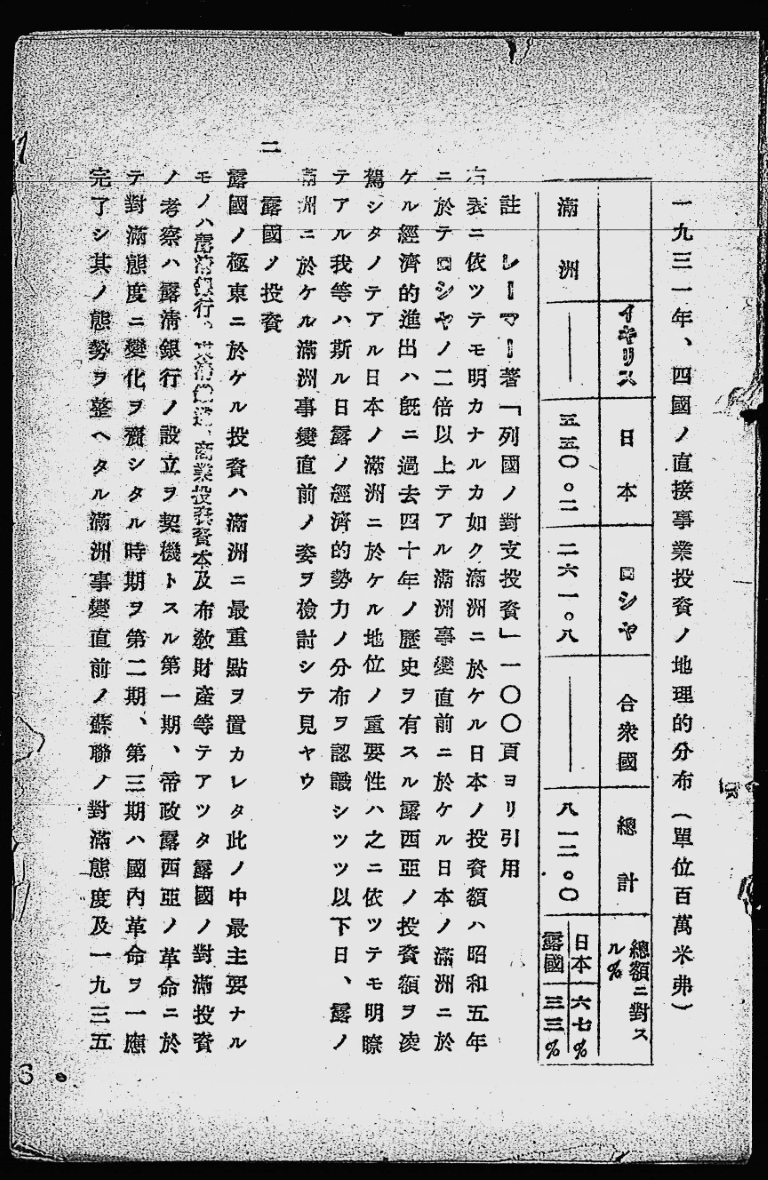 一九三一年、四國ノ直接事業投資ノ地理的分布(單位百萬米弗)
イギリス 日本 ロシヤ 合衆國 總計 總額ニ對スル%
滿洲 ― 五五〇。二 二六一。八 ― 八一二。〇 日本六七% 露國三三%
註 レーマー著「列國ノ對支投資」一〇〇頁ヨリ引用
右表ニ依ツテモ明カナルカ如ク滿洲ニ於ケル日本ノ投資額ハ昭和五年
ニ於テロシヤノ二倍以上テアル滿洲事變直前ニ於ケル日本ノ滿洲ニ於
ケル經濟的進出ハ旣ニ過去四十年ノ歷史ヲ有スル露西亞ノ投資額ヲ凌
駕シタノテアル日本ノ滿洲ニ於ケル地位ノ重要性ハ之ニ依ツテモ明瞭
テアル我等ハ斯ル日露ノ經濟的勢力ノ分布ヲ認識シツツ以下日、露ノ
滿洲ニ於ケル滿洲事變直前ノ姿ヲ檢討シテ見ヤウ
二 露國ノ投資
露國ノ極東ニ於ケル投資ハ滿洲ニ最重點ヲ置カレタ此ノ中最主要ナル
モノハ露淸銀行。商業投資資本及布敎財產等テアツタ露國ノ對滿投資
ノ考察ハ露淸銀行ノ設立ヲ契機トスル第一期、帝政露西亞ノ革命ニ於
テ對滿態度ニ變化ヲ齎シタル時期ヲ第二期、第三期ハ國內革命ヲ一應
完了シ其ノ態勢ヲ整ヘタル滿洲事變直前ノ蘇聯ノ對滿態度及一九三五